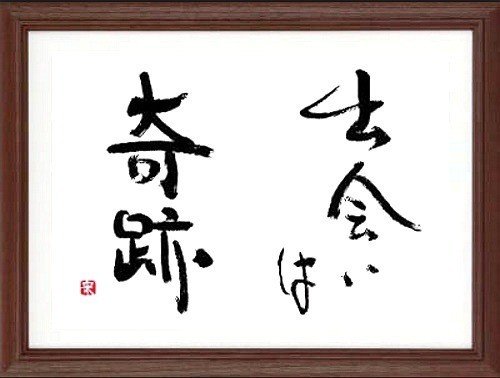 出会いは
奇跡